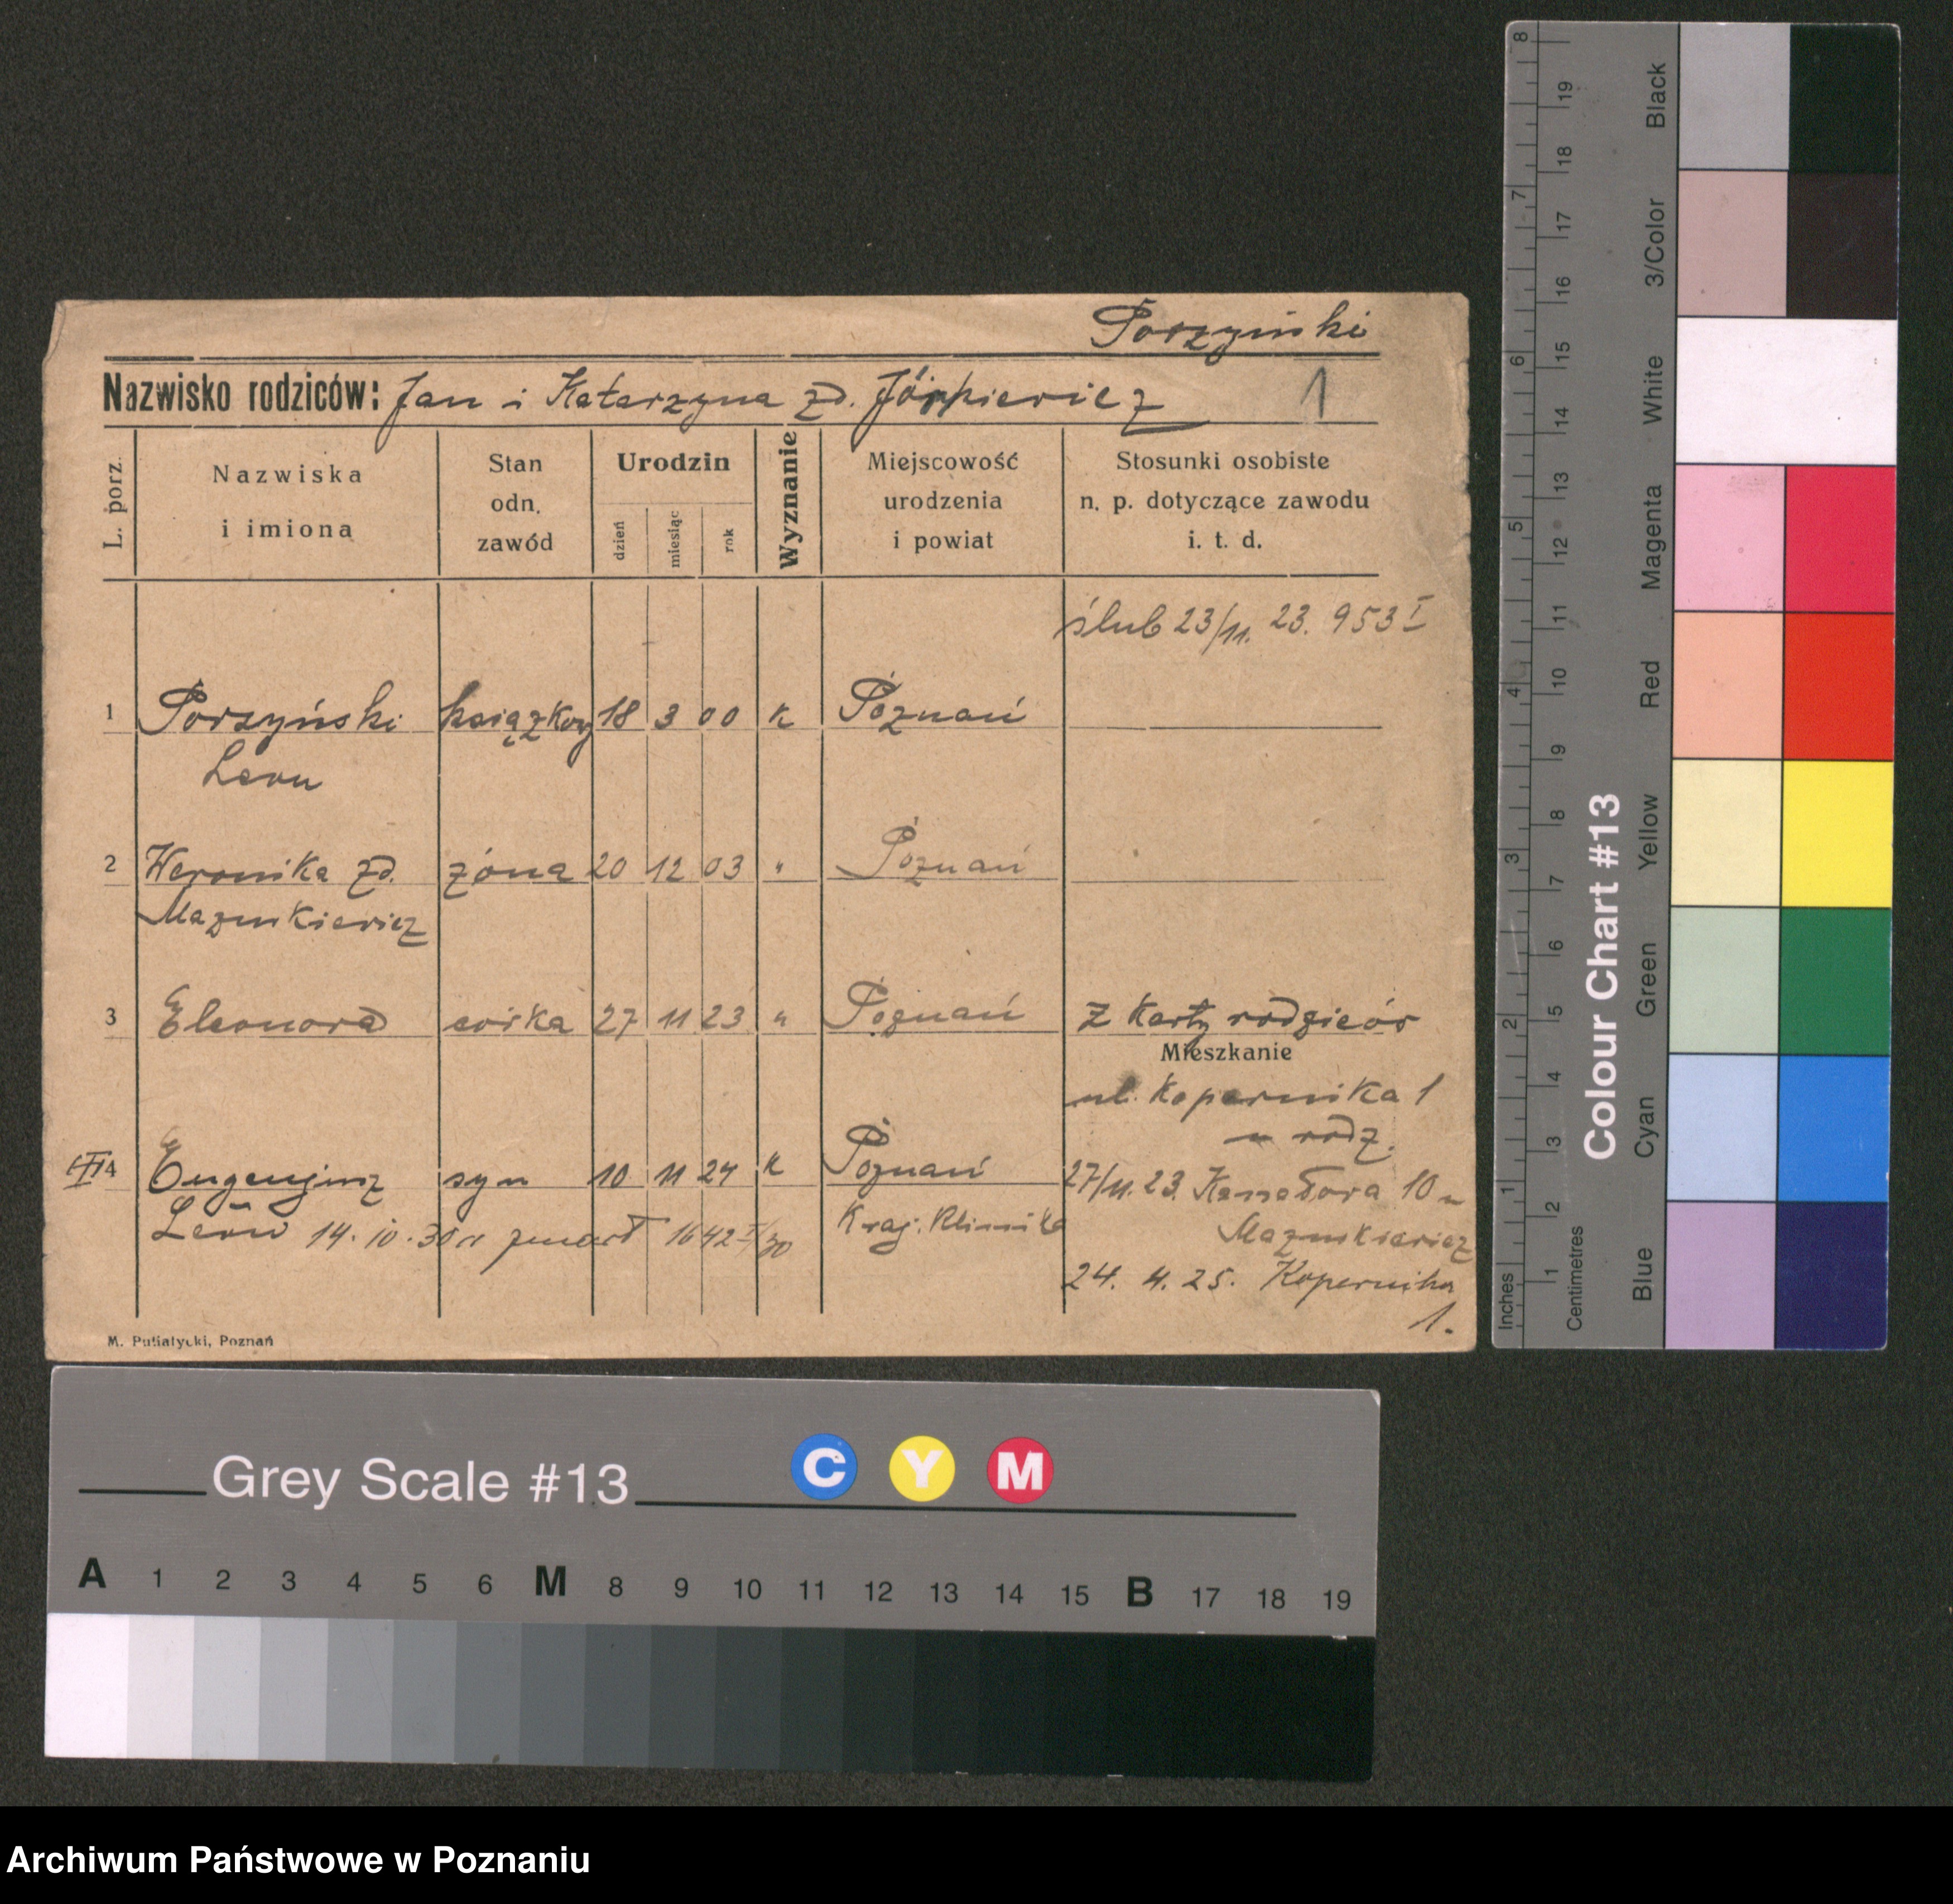 Porzyński
Nazwisko rodziców: Jan i Katarzyna zd. 1
L. porz.
Nazwiska i imiona
Stan odn. zawód
Urodzin
dzień miesiąc rok
Wyznanie
Miejscowość urodzenia i powiat
Stosunki osobiste n. p. dotyczące zawodu i. t. d.
ślub 23/11. 23. 953 I
1 Porzyński książkow 18 3 00 k Poznań
Leon
2 Weronika zd. żona 20 12 03 " Poznań
Mazurkiewicz
3 Eleonora córka 27 11 23 " Poznań z karty rodziców
Mieszkanie
ul. Kopernika 1
u rodz.
4 Eugenjusz syn 10 11 24 k Poznań
27/11. 23. 10 u
Leon 14. 10. 30 r zmarł 1642 I/30 Kraj. Klinika
Mazurkiewicz
24. 4. 25. Kopernika
1.
M. Putiatycki, Poznań
Grey Scale #13
C Y M
A 1 2 3 4 5 6 M 8 9 10 11 12 13 14 15 B 17 18 19
Colour Chart #13
Blue Cyan Green Yellow Red Magenta White 3/Color Black
Inches 1 2 3 4 5 6 7 8
Centimetres 1 2 3 4 5 6 7 8 9 10 11 12 13 14 15 16 17 18 19
Archiwum Państwowe w Poznaniu